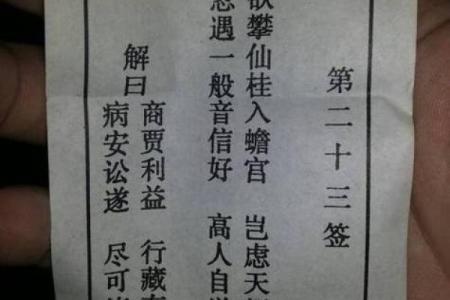 第二十三签
欲攀仙桂入蟾宫 岂虑天
遇一般音信好 高人自
解曰
商贾利益 行藏
病安讼遂 尽可